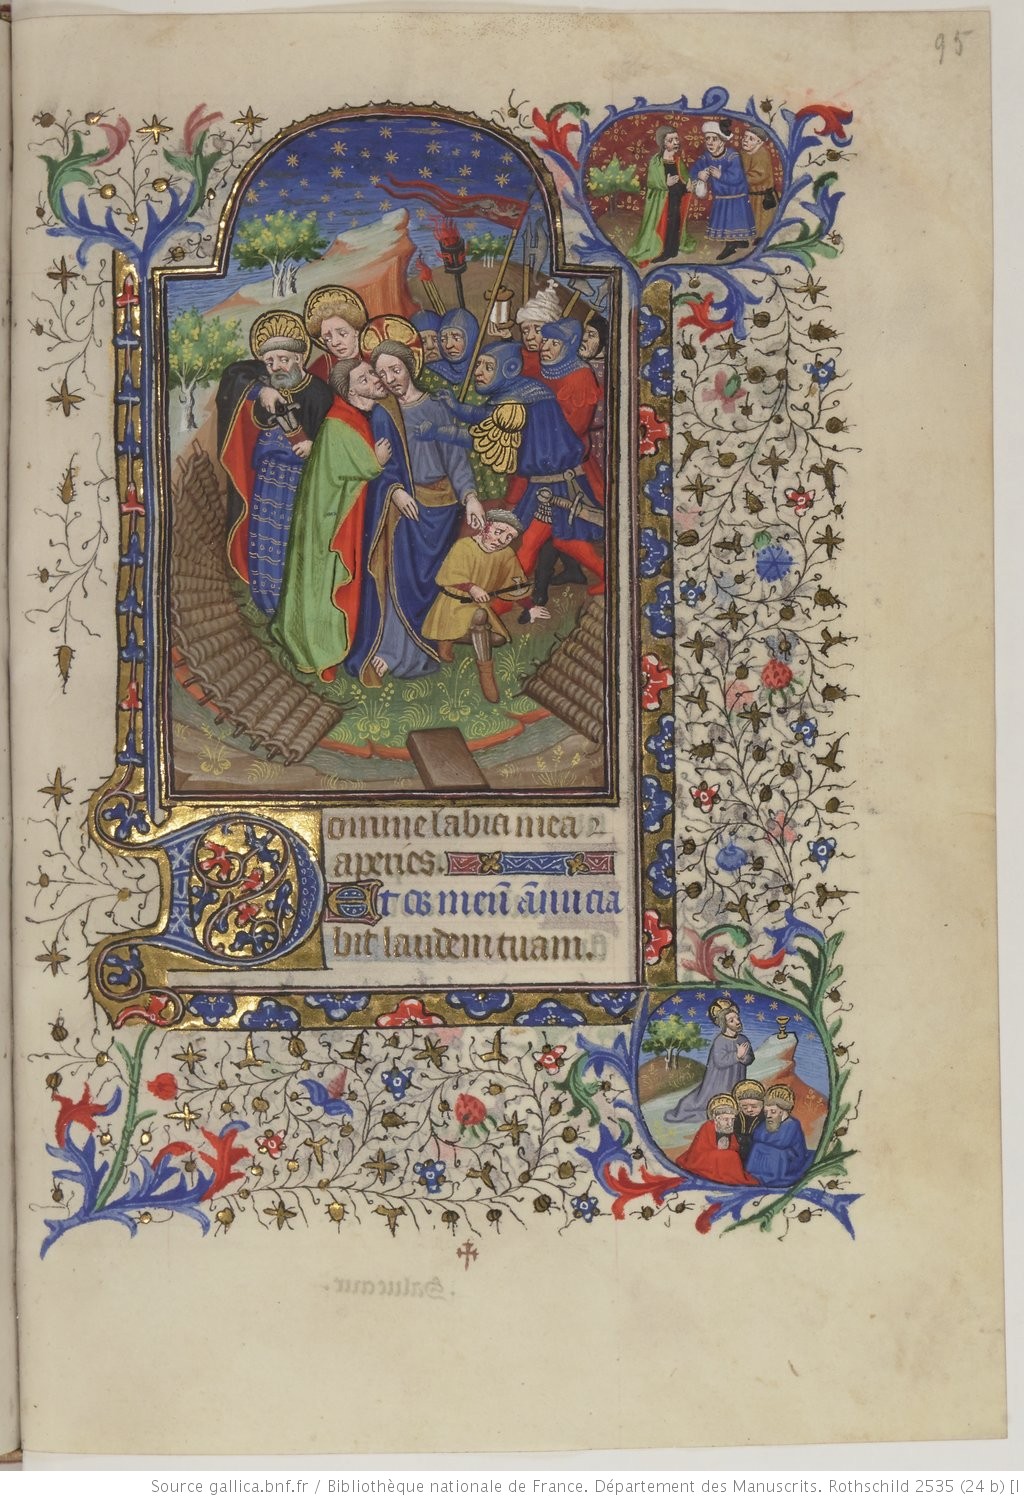 95
Domine labia mea
aperies.
Et os meū ānuncia
bit laudem tuam.
Source gallica.bnf.fr / Bibliothèque nationale de France. Département des Manuscrits. Rothschild 2535 (24 b) [l